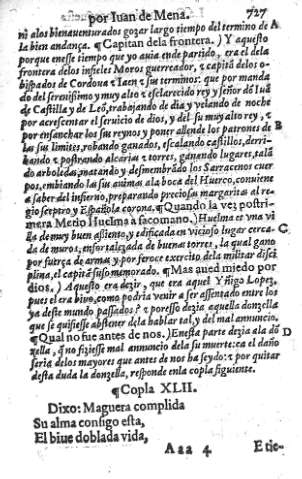 por Iuan de Mena. 727
ni alos bienauenturados gozar largo tiempo del termino de A
la bien andança. ¶Capitan dela frontera.) Y aquesto
porque enesse tiempo que yo auia ende partido, era el dela
frontera delos infieles Moros guerreador, z capitã delos o-
bispados de Cordoua z Iaen z sus terminos: que por manda
do del serenissimo y muy alto z esclarecido rey y señor dõ Iuã
de Castilla y de Leõ, trabajando de dia y velando de noche
por acrescentar el seruicio de dios, y del su muy alto rey, z
por ensanchar los sus reynos y poner allende los patrones de B
las sus limites, robando ganados, escalando castillos, derri-
bando z postrando alcarias z torres, ganando lugares, talã
do arboledas, matando y desmembrando los Sarracenos cuer
pos, embiando las sus animas ala boca del Huerco, conuiene
a saber del infierno, preparando preciosas margaritas al re-
gio sceptro y Española corona. ¶Quando la vez postri-
mera Metio Huelma a sacomano.) Huelma es vna vi
lla de muy buen assiento, y edificada en vicioso lugar cerca- C
da de muros, enfortalezada de buenas torres, la qual gano
por fuerça de armas y por feroce exercito dela militar disci
plina, el capitã suso memorado. ¶Mas aued miedo por
dios.) Aquesto era dezir, que era aquel Yñigo Lopez,
pues el era biuo, como podria venir a ser assentado entre los
ya deste mundo passados? z poresso dezia aquella donzella
que se quisiesse abstener dela hablar tal, y del mal annuncio.
¶Qual no fue antes de nos.) Enesta parte dezia ala dõ D
zella, q̃ no fiziesse mal annuncio dela su muerte: ca el daño
seria delos mayores que antes de nos ha seydo: z por quitar
desta duda la donzella, responde enla copla siguiente.
¶Copla XLII.
Dixo: Maguera complida
Su alma contigo esta,
El biue doblada vida,
Aaa 4 E tie-